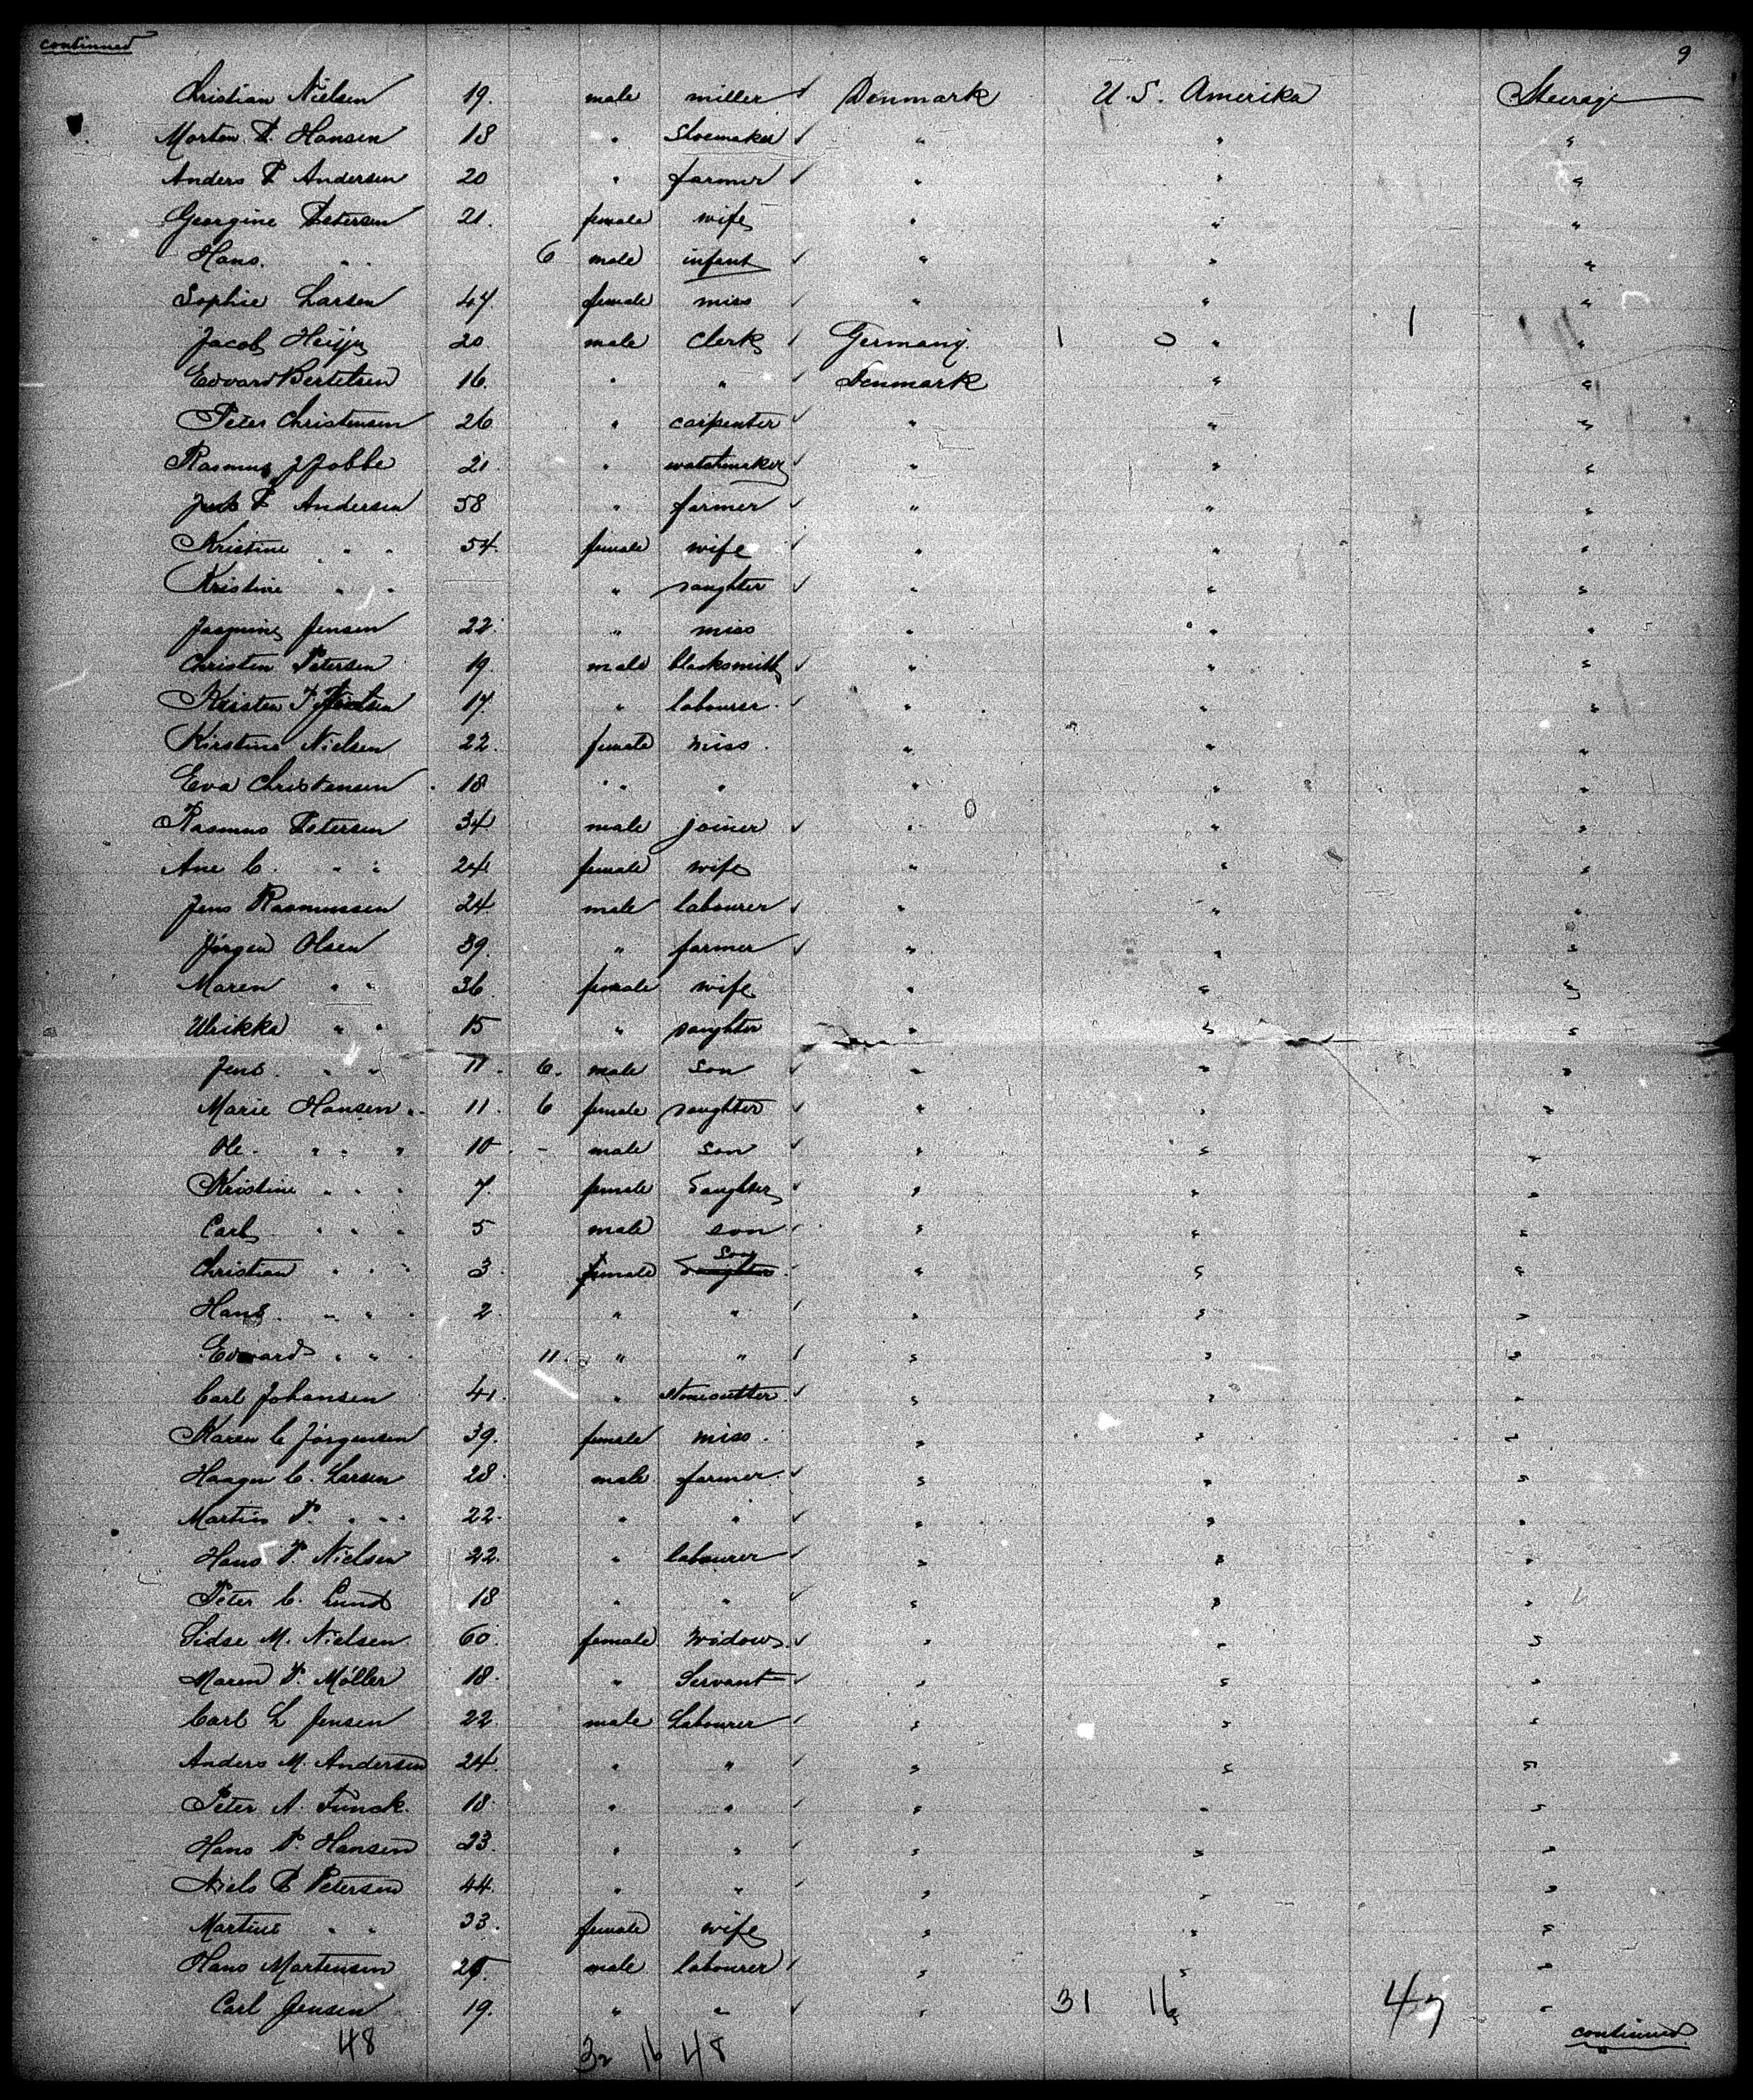 continued
9
Christian Nielsen 19. male miller ✓ Denmark U.S. Amerika Steerage
Morten P. Hansen 18 " Shoemaker ✓ " " "
Anders P Andersen 20 " farmer ✓ " " "
Georgine Petersen 21. female wife " " "
Hans. " " 6 male infant ✓ " " "
Sophie Larsen 47. female miss ✓ " " "
Jacob 20 male Clerk ✓ Germany. 1 0 " 1 "
Edvard Bertelsen 16. " " ✓ Denmark " "
Peter Christensen 26 " carpenter ✓ " " "
Rasmus J 21. " watchmaker ✓ " " "
Jens P Andersen 58 " farmer ✓ " " "
Kristine " " 54. female wife ✓ " " "
Kristine " " " daughter ✓ " " "
Jasmine Jensen 22. " miss " " "
Christen Petersen 19. male blacksmith ✓ " " "
Kristen 17. " labourer. ✓ " " "
Kirstine Nielsen 22. female miss. " " "
Eva Christensen 18 " " " " "
Rasmus Petersen 34 male joiner ✓ " " "
Ane C. " " 24. female wife " " "
Jens Rasmussen 24. male labourer ✓ " " "
Jörgen Olsen 39. " farmer ✓ " " "
Maren " " 36 female wife " " "
Ulrikka " " 15 " daughter " " "
Jens. " " 11. 6. male son ✓ " " "
Marie Hansen " 11. 6 female daughter ✓ " " "
Ole. " " " 10. - male son ✓ " " "
Kristine " " " 7. female daughter ✓ " " "
Carl " " " 5 male son ✓ " " "
son
Christian " " " 3. female daughter " " "
Hans. " " " 2. " " ✓ " " "
Edward " " " 11. " " ✓ " " "
Carl Johansen 41. " Stonecutter ✓ " " "
Karen C Jörgensen 39. female miss. " " "
Haagen C. Larsen 28. male farmer ✓ " " "
Martin P. " " " 22. " " ✓ " " "
Hans P. Nielsen 22. " labourer ✓ " " "
Peter C. Lund 18 " " ✓ " " "
Sidse M. Nielsen 60. female widow ✓ " " "
Maren P. Möller 18. " Servant ✓ " " "
Carl L Jensen 22 male Labourer ✓ " " "
Anders M. Andersen 24. " " ✓ " " "
Peter A. Funck. 18. " " ✓ " " "
Hans P. Hansen 23. " " ✓ " " "
Niels P Petersen 44. " " ✓ " " "
Martine " " 33. female wife " " "
Hans Martensen male labourer ✓ " " "
Carl Jensen 19. " " ✓ " 31 16 47 "
48 32 16 48
continued